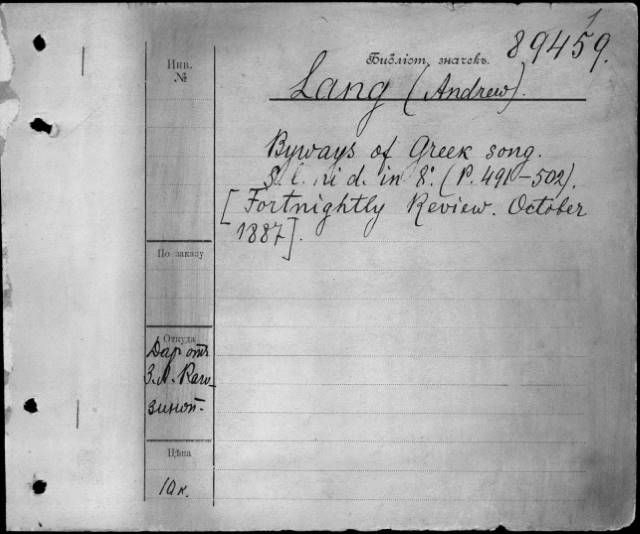 Инв.
№
Библіот. значекъ. 89459.
1
Lang (Andrew).
Byways of Greek song.
S. l. ni d. in 8°. (P. 491–502).
[Fortnightly Review. October
1887].
По заказу
Откуда
Даръ отъ
З. А. Раго-
зиной.
Цѣна
10 к.